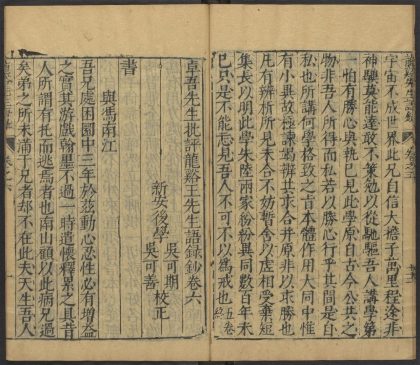 宇宙不成世界此兄自信大擔子萬里程途非
神驥莫能達敢不策勉以從馳驅吾人講學第
一怕有勝心與執已見此學原自古今公共之
物非吾人所得而私若以勝心行乎其間是自
私也所講何學格致之旨本體作用大同中惟
有小異故極謙竭辨其求合并原非以求勝也
凡有辨析所見未合不妨暫舍以虛相受棄短
集長以明此學朱陸兩家紛紛異同數百年未
已只是不能忘見吾人不可不以為戒也 五卷終
卓吾先生批評龍谿王先生語錄鈔卷六
新安後學
吳可期
吳可善
校正
書
與馮南江
吾兄處困圄中三年於茲動心忍性必有增益
之實其游戲翰墨不過一時遣懷釋累之具昔
人所謂有托而逃焉者也南山顧以此病兄過
矣弟之所未滿于兄者却不在此夫天生吾人